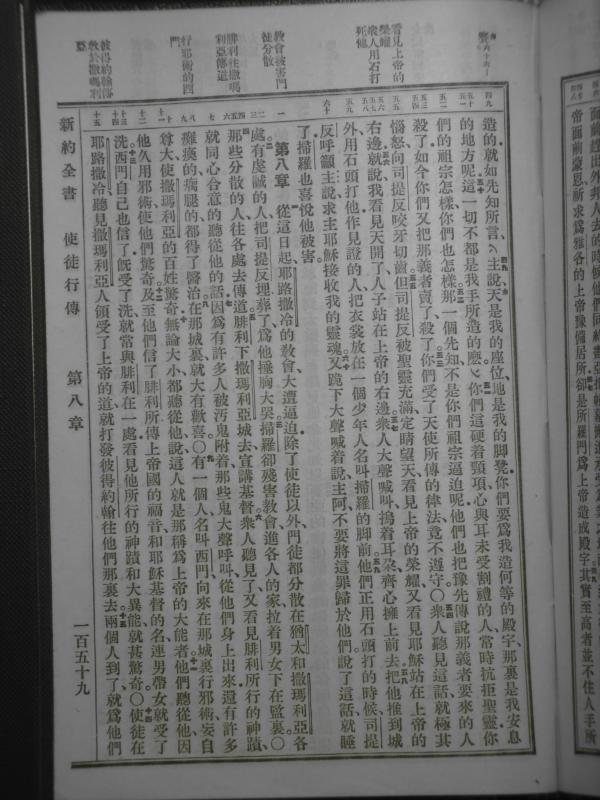 面前蒙恩祈求爲雅各的上帝豫備居所卻是所羅門爲上帝造成殿宇其實至高者並不住人手所
造的就如先知所言主說天是我的座位地是我的脚凳你們要爲我造何等的殿宇那裏是我安息
的地方呢這一切不都是我手所造的麽你們這硬着頸項心與耳未受割禮的人常時抗拒聖靈你
們的祖宗怎樣你們也怎樣那一個先知不是你們祖宗逼迫呢他們也把豫先傳說那義者要來的人
殺了如今你們又把那義者賣了殺了你們受了天使所傳的律法竟不遵守〇衆人聽見這話就極其
惱怒向司提反咬牙切齒但司提反被聖靈充滿定睛望天看見上帝的榮耀又看見耶穌站在上帝的
右邊就說我看見天開了人子站在上帝的右邊衆人大聲喊叫摀着耳朶齊心擁上前去把他推到城
外用石頭打他作見證的人把衣裳放在一個少年人名叫掃羅的脚前他們正用石頭打的時候司提
反呼籲主說求主耶穌接收我的靈魂又跪下大聲喊着說主阿不要將這罪歸於他們說了這話就睡
了掃羅也喜悅他被害
第八章 從這日起耶路撒冷的敎會大遭逼迫除了使徒以外門徒都分散在猶太和撒瑪利亞各
處有虔誠的人把司提反埋葬了爲他捶胸大哭掃羅卻殘害敎會進各人的家拉着男女下在監裏〇
那些分散的人往各處去傳道腓利下撒瑪利亞城去宣講基督衆人聽見了又看見腓利所行的神蹟
就同心合意的聽從他的話因爲有許多人被汚鬼附着那些鬼大聲呼叫從他們身上出來還有許多
癱瘓的瘸腿的都得了醫治在那城裏就大有歡喜〇有一個人名叫西門向來在那城裏行邪術妄自
尊大使撒瑪利亞的百姓驚奇無論大小都聽從他說這人就是那稱爲上帝的大能者他們聽從他因
他久用邪術使他們驚奇及至他們信了腓利所傳上帝國的福音和耶穌基督的名連男帶女就受了
洗西門自己也信了旣受了洗就常與腓利在一處看見他所行的神蹟和大異能就甚驚奇〇使徒在
耶路撒冷聽見撒瑪利亞人領受了上帝的道就打發彼得約翰往他們那裏去兩個人到了就爲他們
新約全書 使徒行傳 第八章 一百五十九
看見上帝的榮耀
衆人用石打死他
敎會被害門徒分散
腓利往撒瑪利亞傳道
行邪術的西門
彼得約翰傳敎於撒瑪利亞